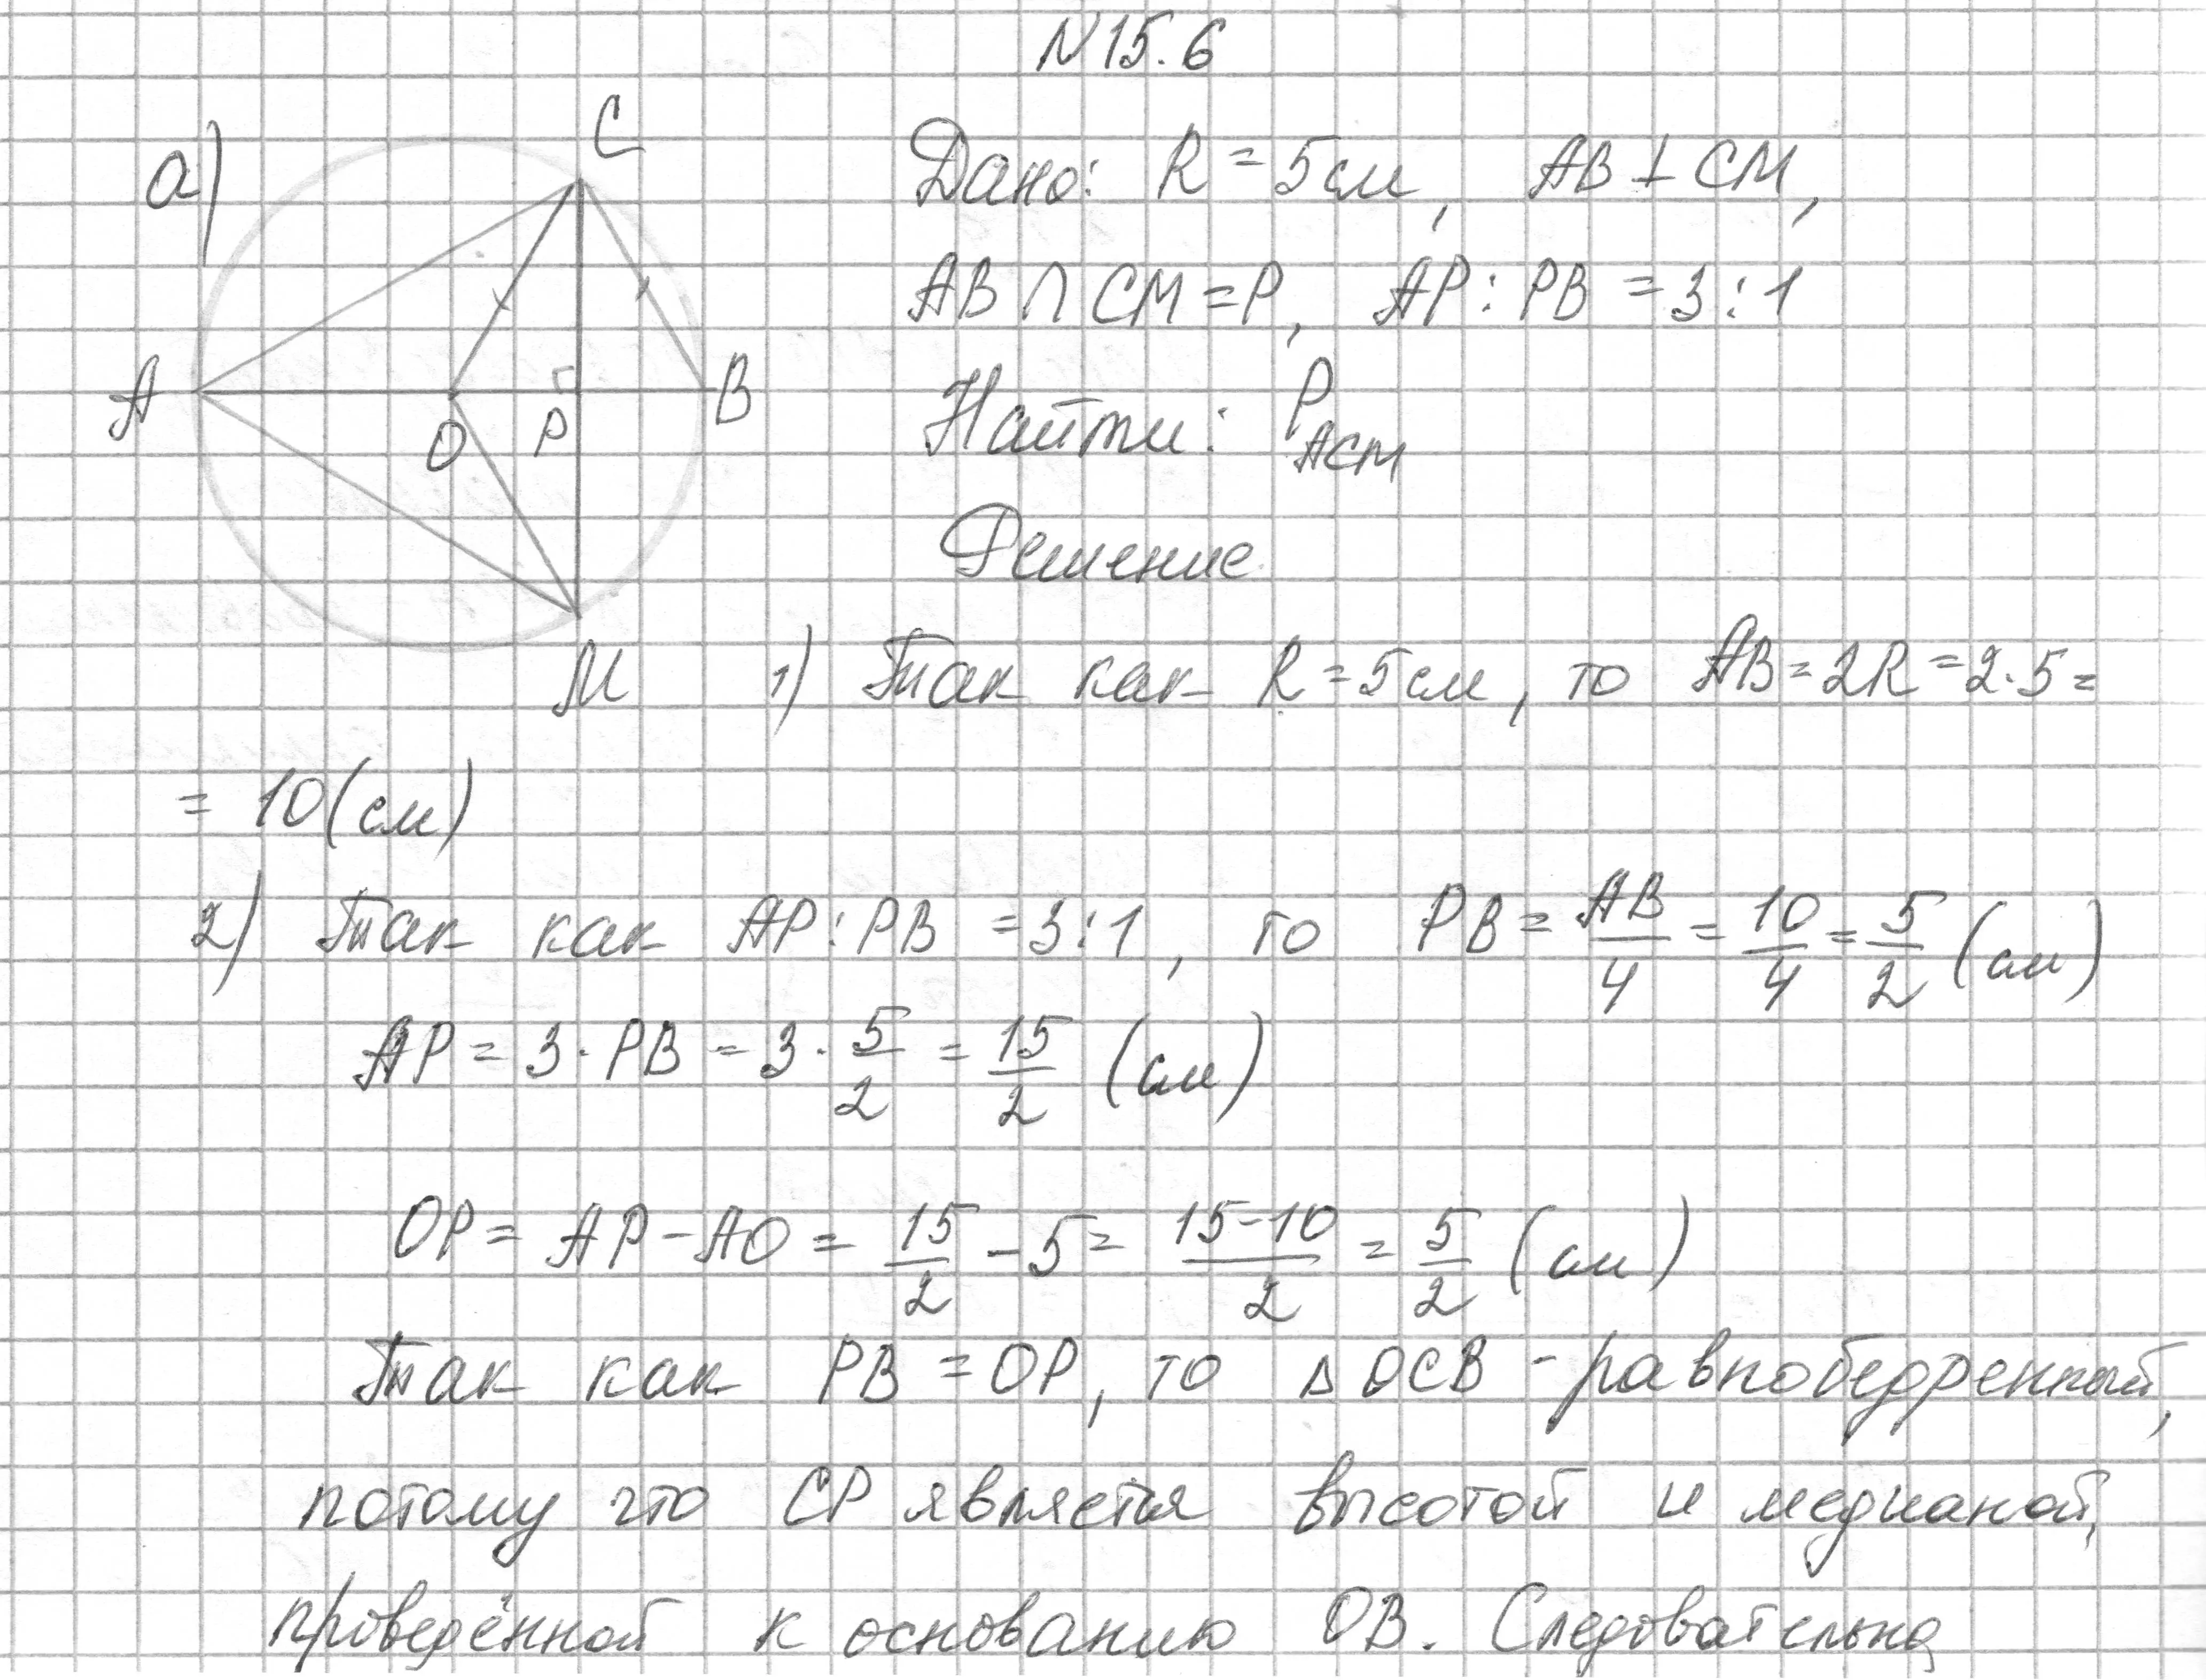 N 15.6
а)
C
A
O
P
B
M
Дано: R = 5 см, AB ⊥ CM,
AB ∩ CM = P, AP : PB = 3 : 1
Найти: P_ACM
Решение
1) Так как R = 5 см, то AB = 2R = 2·5 =
= 10 (см)
2) Так как AP : PB = 3 : 1, то PB = AB/4 = 10/4 = 5/2 (см)
AP = 3 · PB = 3 · 5/2 = 15/2 (см)
OP = AP − AO = 15/2 − 5 = (15−10)/2 = 5/2 (см)
Так как PB = OP, то Δ OCB - равнобедренный,
потому что CP является высотой и медианой,
проведённой к основанию OB. Следовательно,